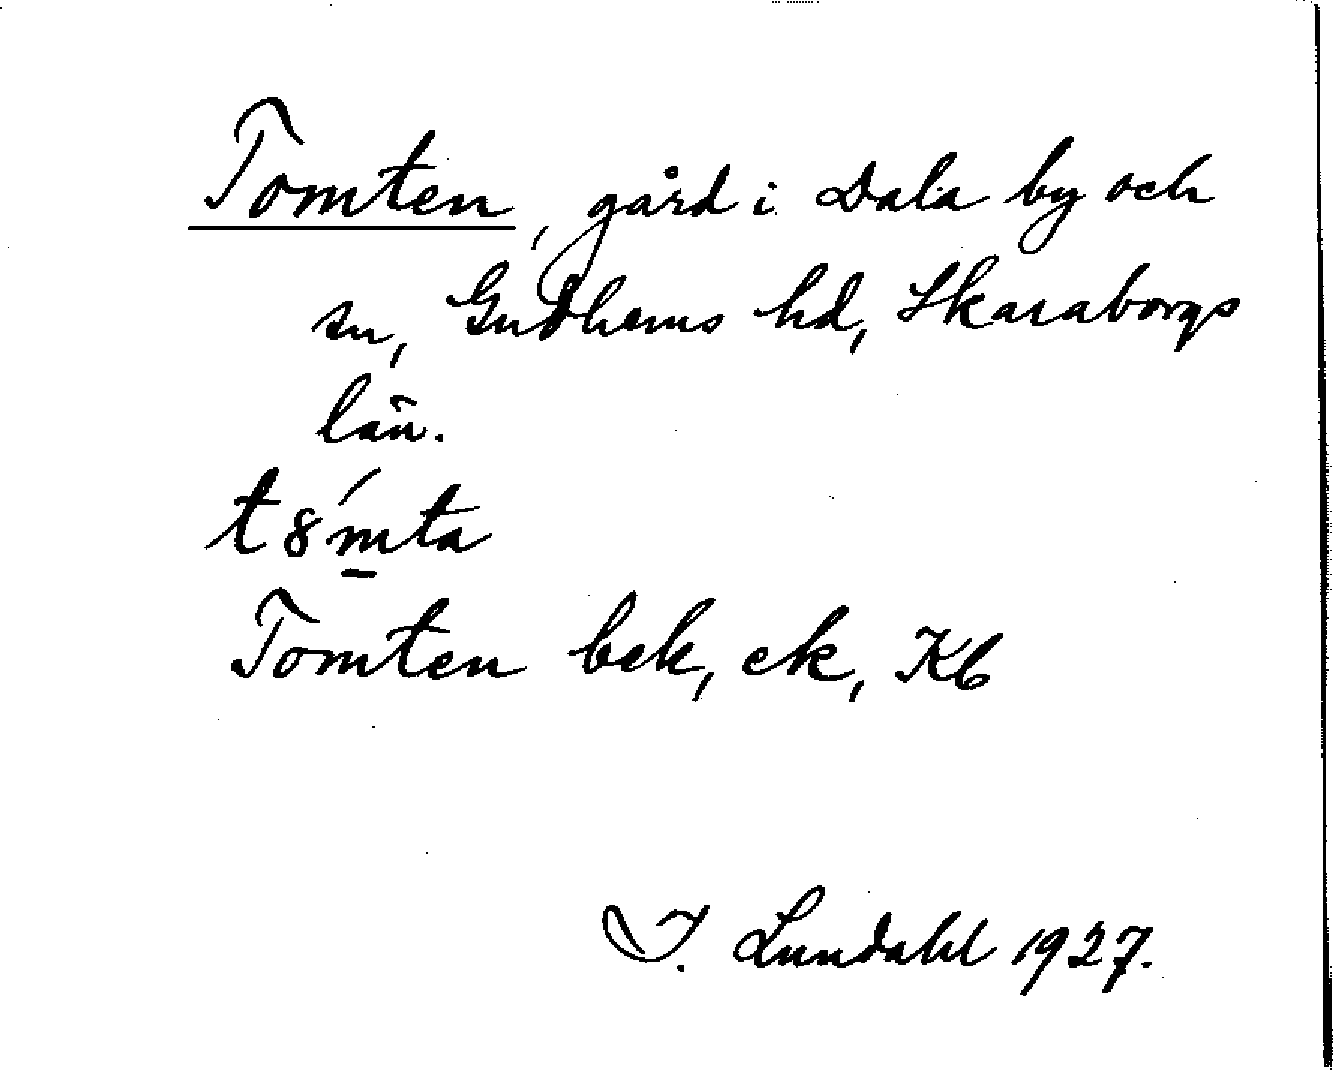 Tomten, gård i Dala by och
sn, Gudhems hd, Skaraborgs
län.
t8́m̲ta
Tomten bek, ek, Kb
I. Lundahl 1927.